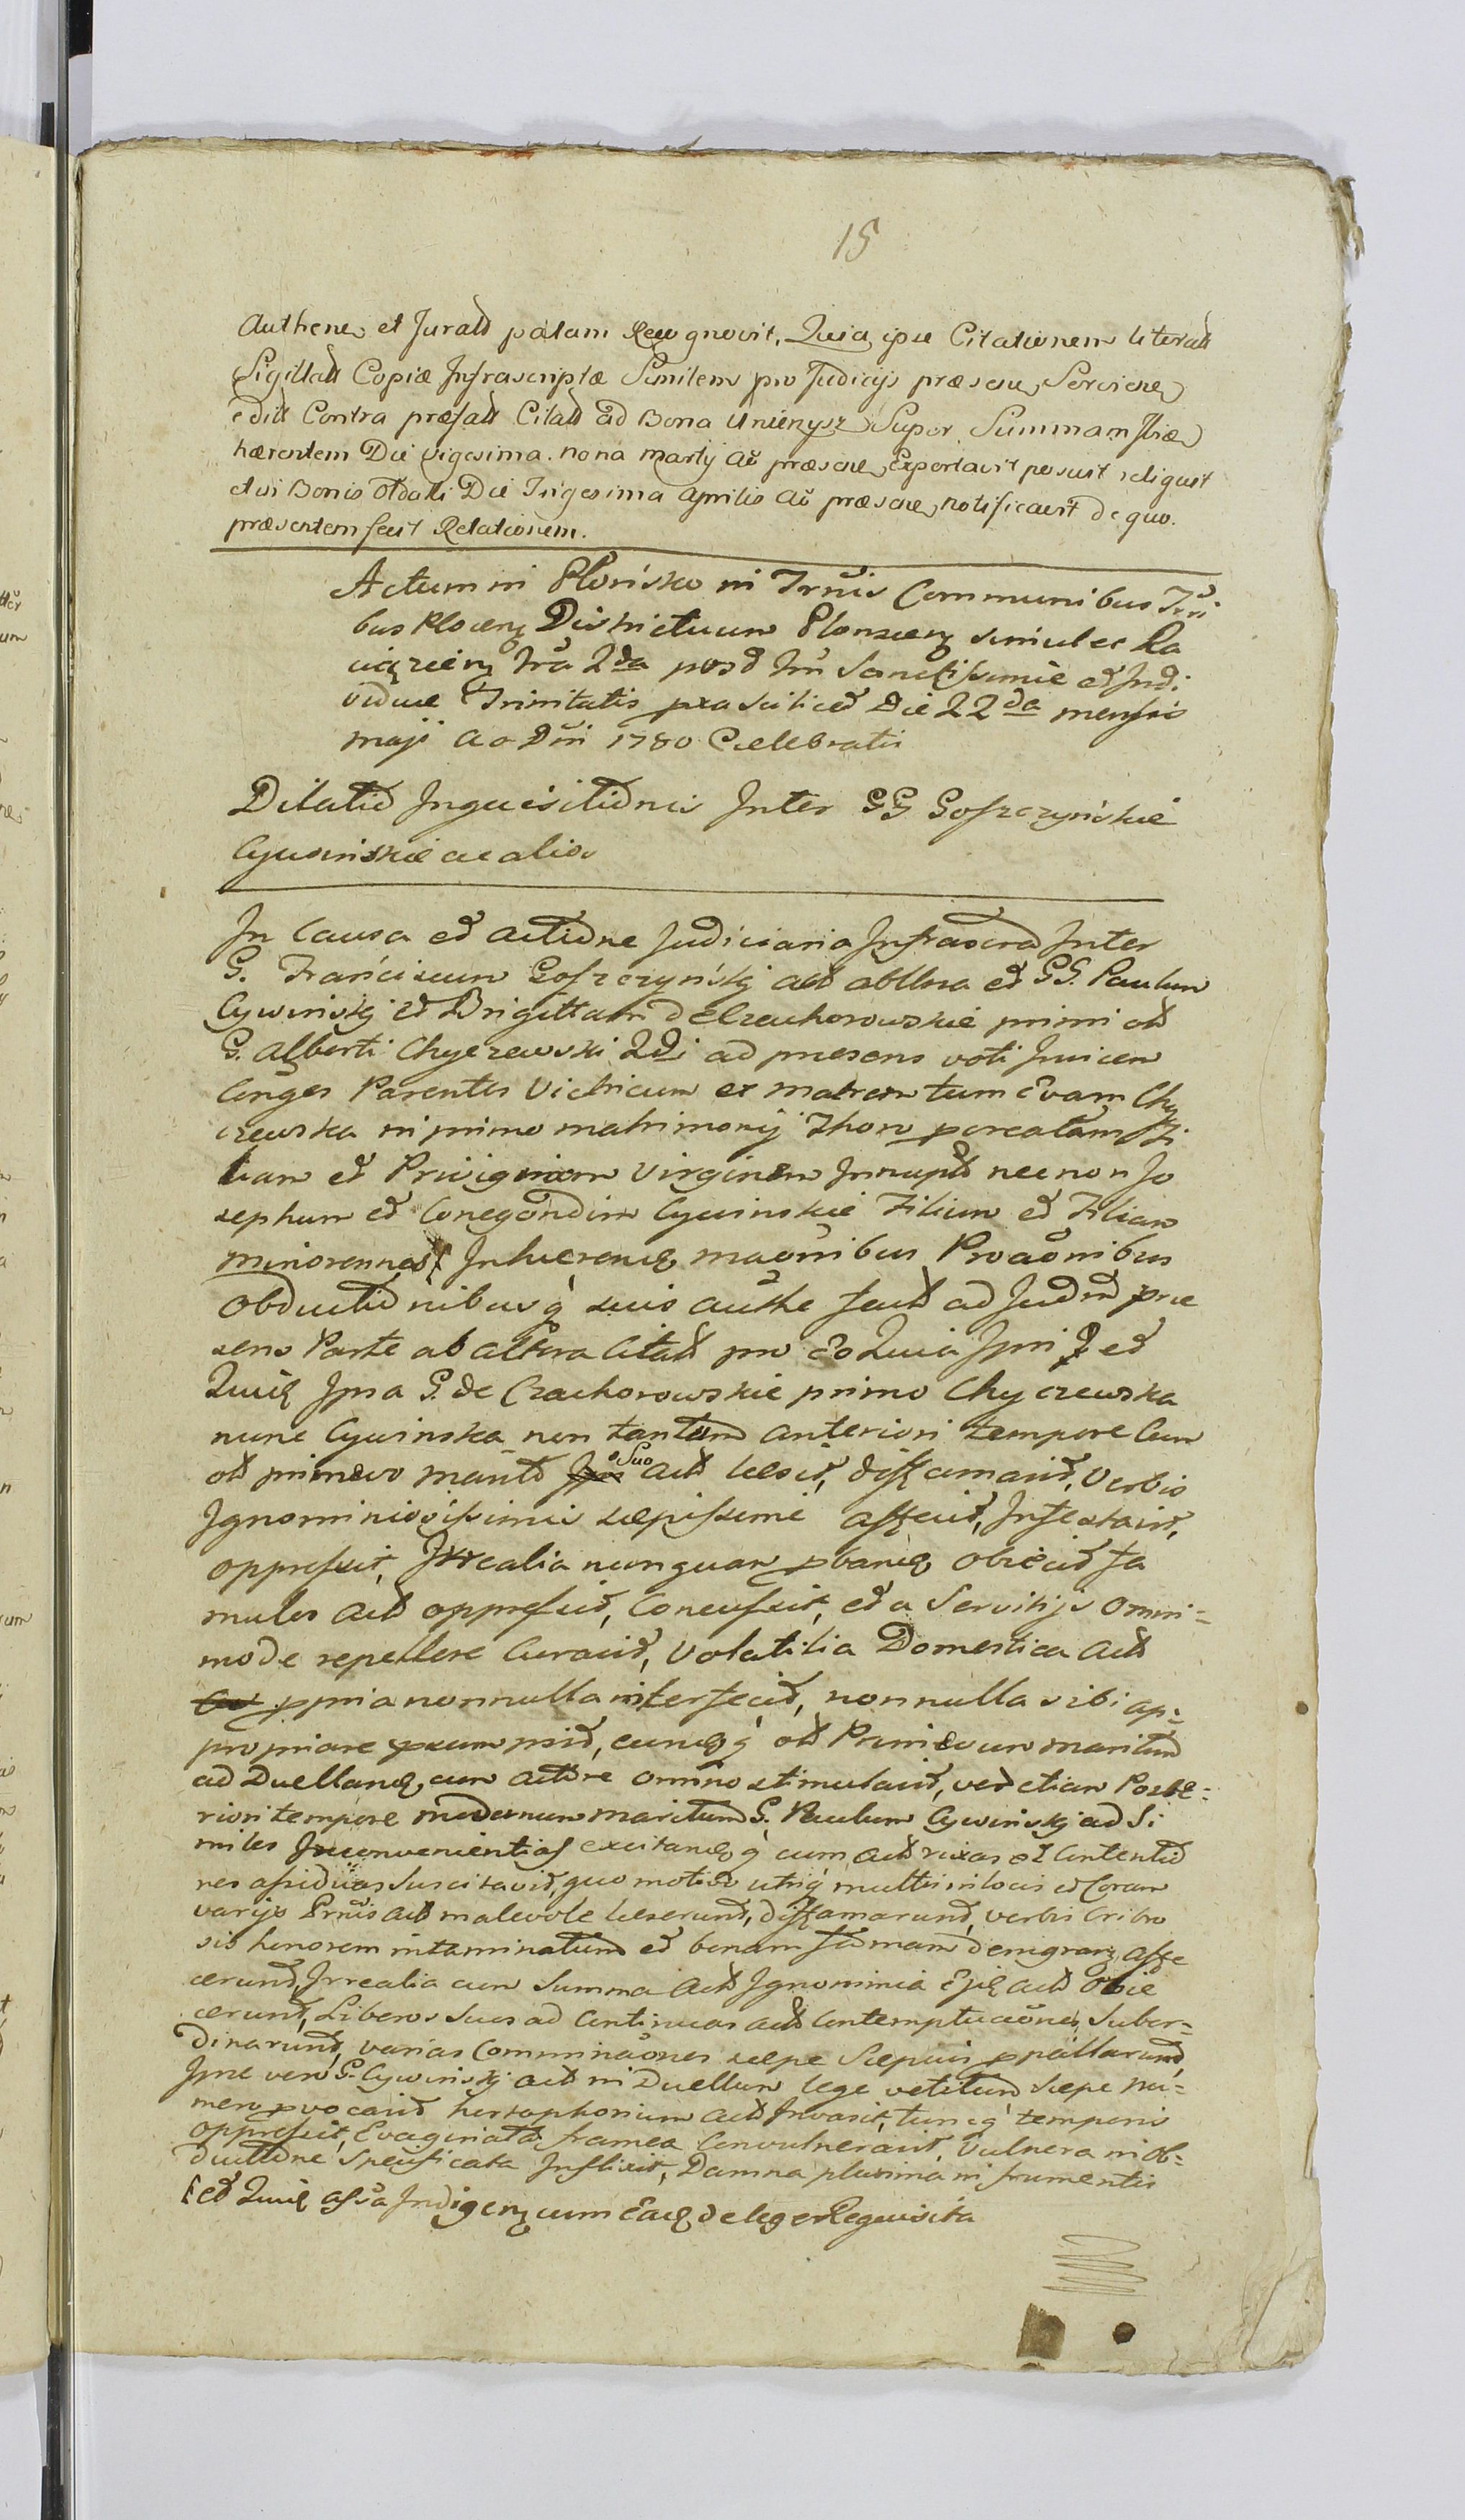 15
Authene et Juratt palam Recognovit, Quia ipse Citationem literatt
Sigillatt Copiæ Infrascriptæ Similem pro Judicijs præsen Servien
editt Contra præfatt Citatt ad Bona Unienysz Super Summam
hærentem Die vigesima nona Martij aö præsen Exportavit posuit reliquit
et in Bonis Die Trigesima Aprilis aö præsen notificavit de quo
præsentem fecit Relationem.
Actum in Plonsko in Trnis Communibus Trri
bus Plocen Districtuum Plonscen simul et Ra
ciązien fra 2da post fm Sanctissimæ et Indi
viduæ Trinitatis pxa scilicet Die 22da mensis
Maji Ao Dni 1780 Celebratis
Dilatio Inquisitionis Inter GG Goszczynskie
Cywinskie ac alios
In Causa et actione Judiciaria Infrascrd Inter
G. Franciscum Goszczynskj act ab una et GG. Paulum
Cywinskj et Brigittam de Czachorowskie primi ott
G. Alberti Chyczewski 2di ad præsens voti Invicem
Conges Parentes Victricum et Matrem tum Evam Chy
czewska in primo matrimonij Thoro pcreatam Fi
liam et Privignam Virginem Innupt necnon Jo
sephum et Conegondim Cywinskie Filium et Filiam
minorennes Inhæren maönibus Proaönibus
Obductionibusq suis authe fctt ad Judm præ
sens Parte ab altera Citatt pro Eo Quia Ipsi et
Quia Ipsa G. de Czachorowskie primo Chyczewska
nunc Cywinska non tantum anteriori tempore Cum
ott primævo marito suo Actt læsit, diffamavit, Verbis
Ignominiosissimis sæpissime affecit, Infestavit,
oppressit, Irrealia nunquam pbanda obiecit fa
mulos Actt oppressit, Concussit, et a Servitijs omni=
mode repellere Curavit, Volatilia Domestica Actt
ppria nonnulla interfecit, nonnulla sibi ap=
propriare præsumpsit, eundq ott Primævum maritum
ad Duelland cum Actore omnino stimulavit, vero etiam Poste=
riori tempore modernum maritum G. Paulum Cywinskj ad Si
miles Inconvenientias excitandq cum actt rixas et Contentio
nes assiduas Suscitavit, quo motivo utriq multis in locis et Coram
varijs Prnis actt malevole læserunt, diffamarunt, verbis Cribro
sis honorem intaminatum et bonam famam denigran affe
cerunt, Irrealia cum Summa actt Ignominia Ejq actt obie
cerunt, Liberos Suos ad Continuas actt Contemptuaönes, Subor=
dinarunt, varias Comminaönes sæpe Sæpius ppallarunt,
Ipse vero G. Cywinskj actt in Duellum lege vetitum sæpe nu=
mero pvocavit actt Invasit, tuncq temporis
oppressit, Evaginata framea Convulneravit, Vulnera in Ob=
ductione Specificata Inflixit, Damna plurima in frumentis
et Quia Indigen cum Ead de lege Requisita